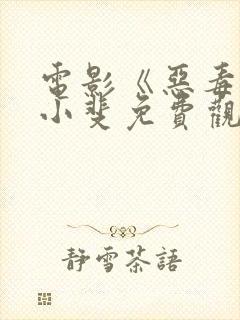 電影《惡毒
小斐免費觀
靜雪茶語